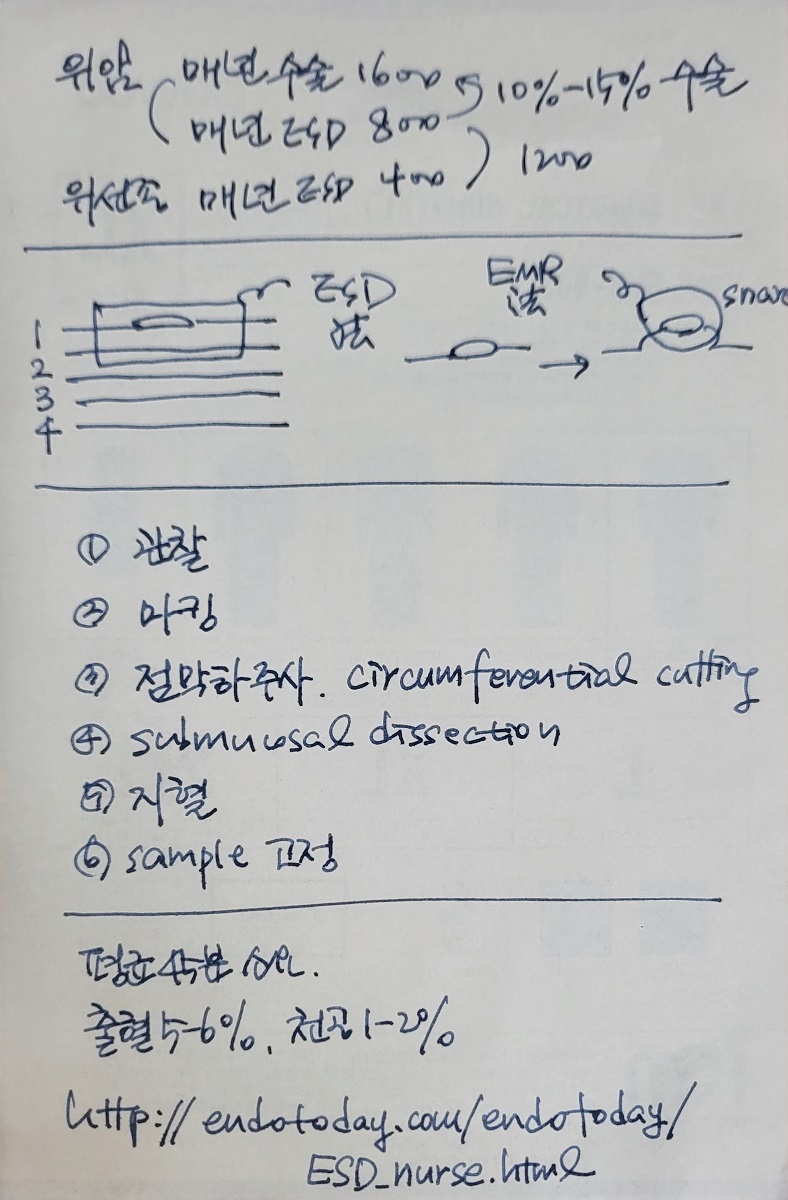 위암 매년 수술 1600 10%-15% 수술
매년 ESD 800
위선종 매년 ESD 400 1200
ESD法
EMR法
snare
1
2
3
4
① 관찰
② 마킹
③ 점막하주사. circumferential cutting
④ submucosal dissection
⑤ 지혈
⑥ sample 고정
평균 45분
출혈 5-6%, 천공 1-2%
http://endotoday.com/endotoday/
ESD_nurse.html